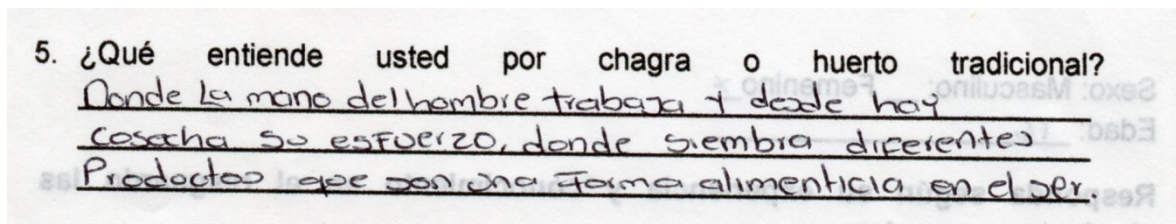 5. ¿Qué entiende usted por chagra o huerto tradicional?
Donde La mano del hombre trabaja y desde hay
cosecha su esfuerzo, donde siembra diferentes
Prodoctos que son una Forma alimenticia en el ser.